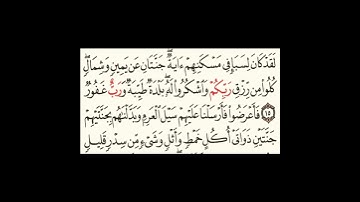 لَقَدْ كَانَ لِسَبَإٍ فِي مَسْكَنِهِمْ ءَايَةٌ ۖ جَنَّتَانِ عَن يَمِينٍ وَشِمَالٍ ۖ
كُلُوا۟ مِن رِّزْقِ رَبِّكُمْ وَٱشْكُرُوا۟ لَهُۥ ۚ بَلْدَةٌ طَيِّبَةٌ وَرَبٌّ غَفُورٌ
﴿١٥﴾ فَأَعْرَضُوا۟ فَأَرْسَلْنَا عَلَيْهِمْ سَيْلَ ٱلْعَرِمِ وَبَدَّلْنَٰهُم بِجَنَّتَيْهِمْ
جَنَّتَيْنِ ذَوَاتَىْ أُكُلٍ خَمْطٍ وَأَثْلٍ وَشَىْءٍ مِّن سِدْرٍ قَلِيلٍ